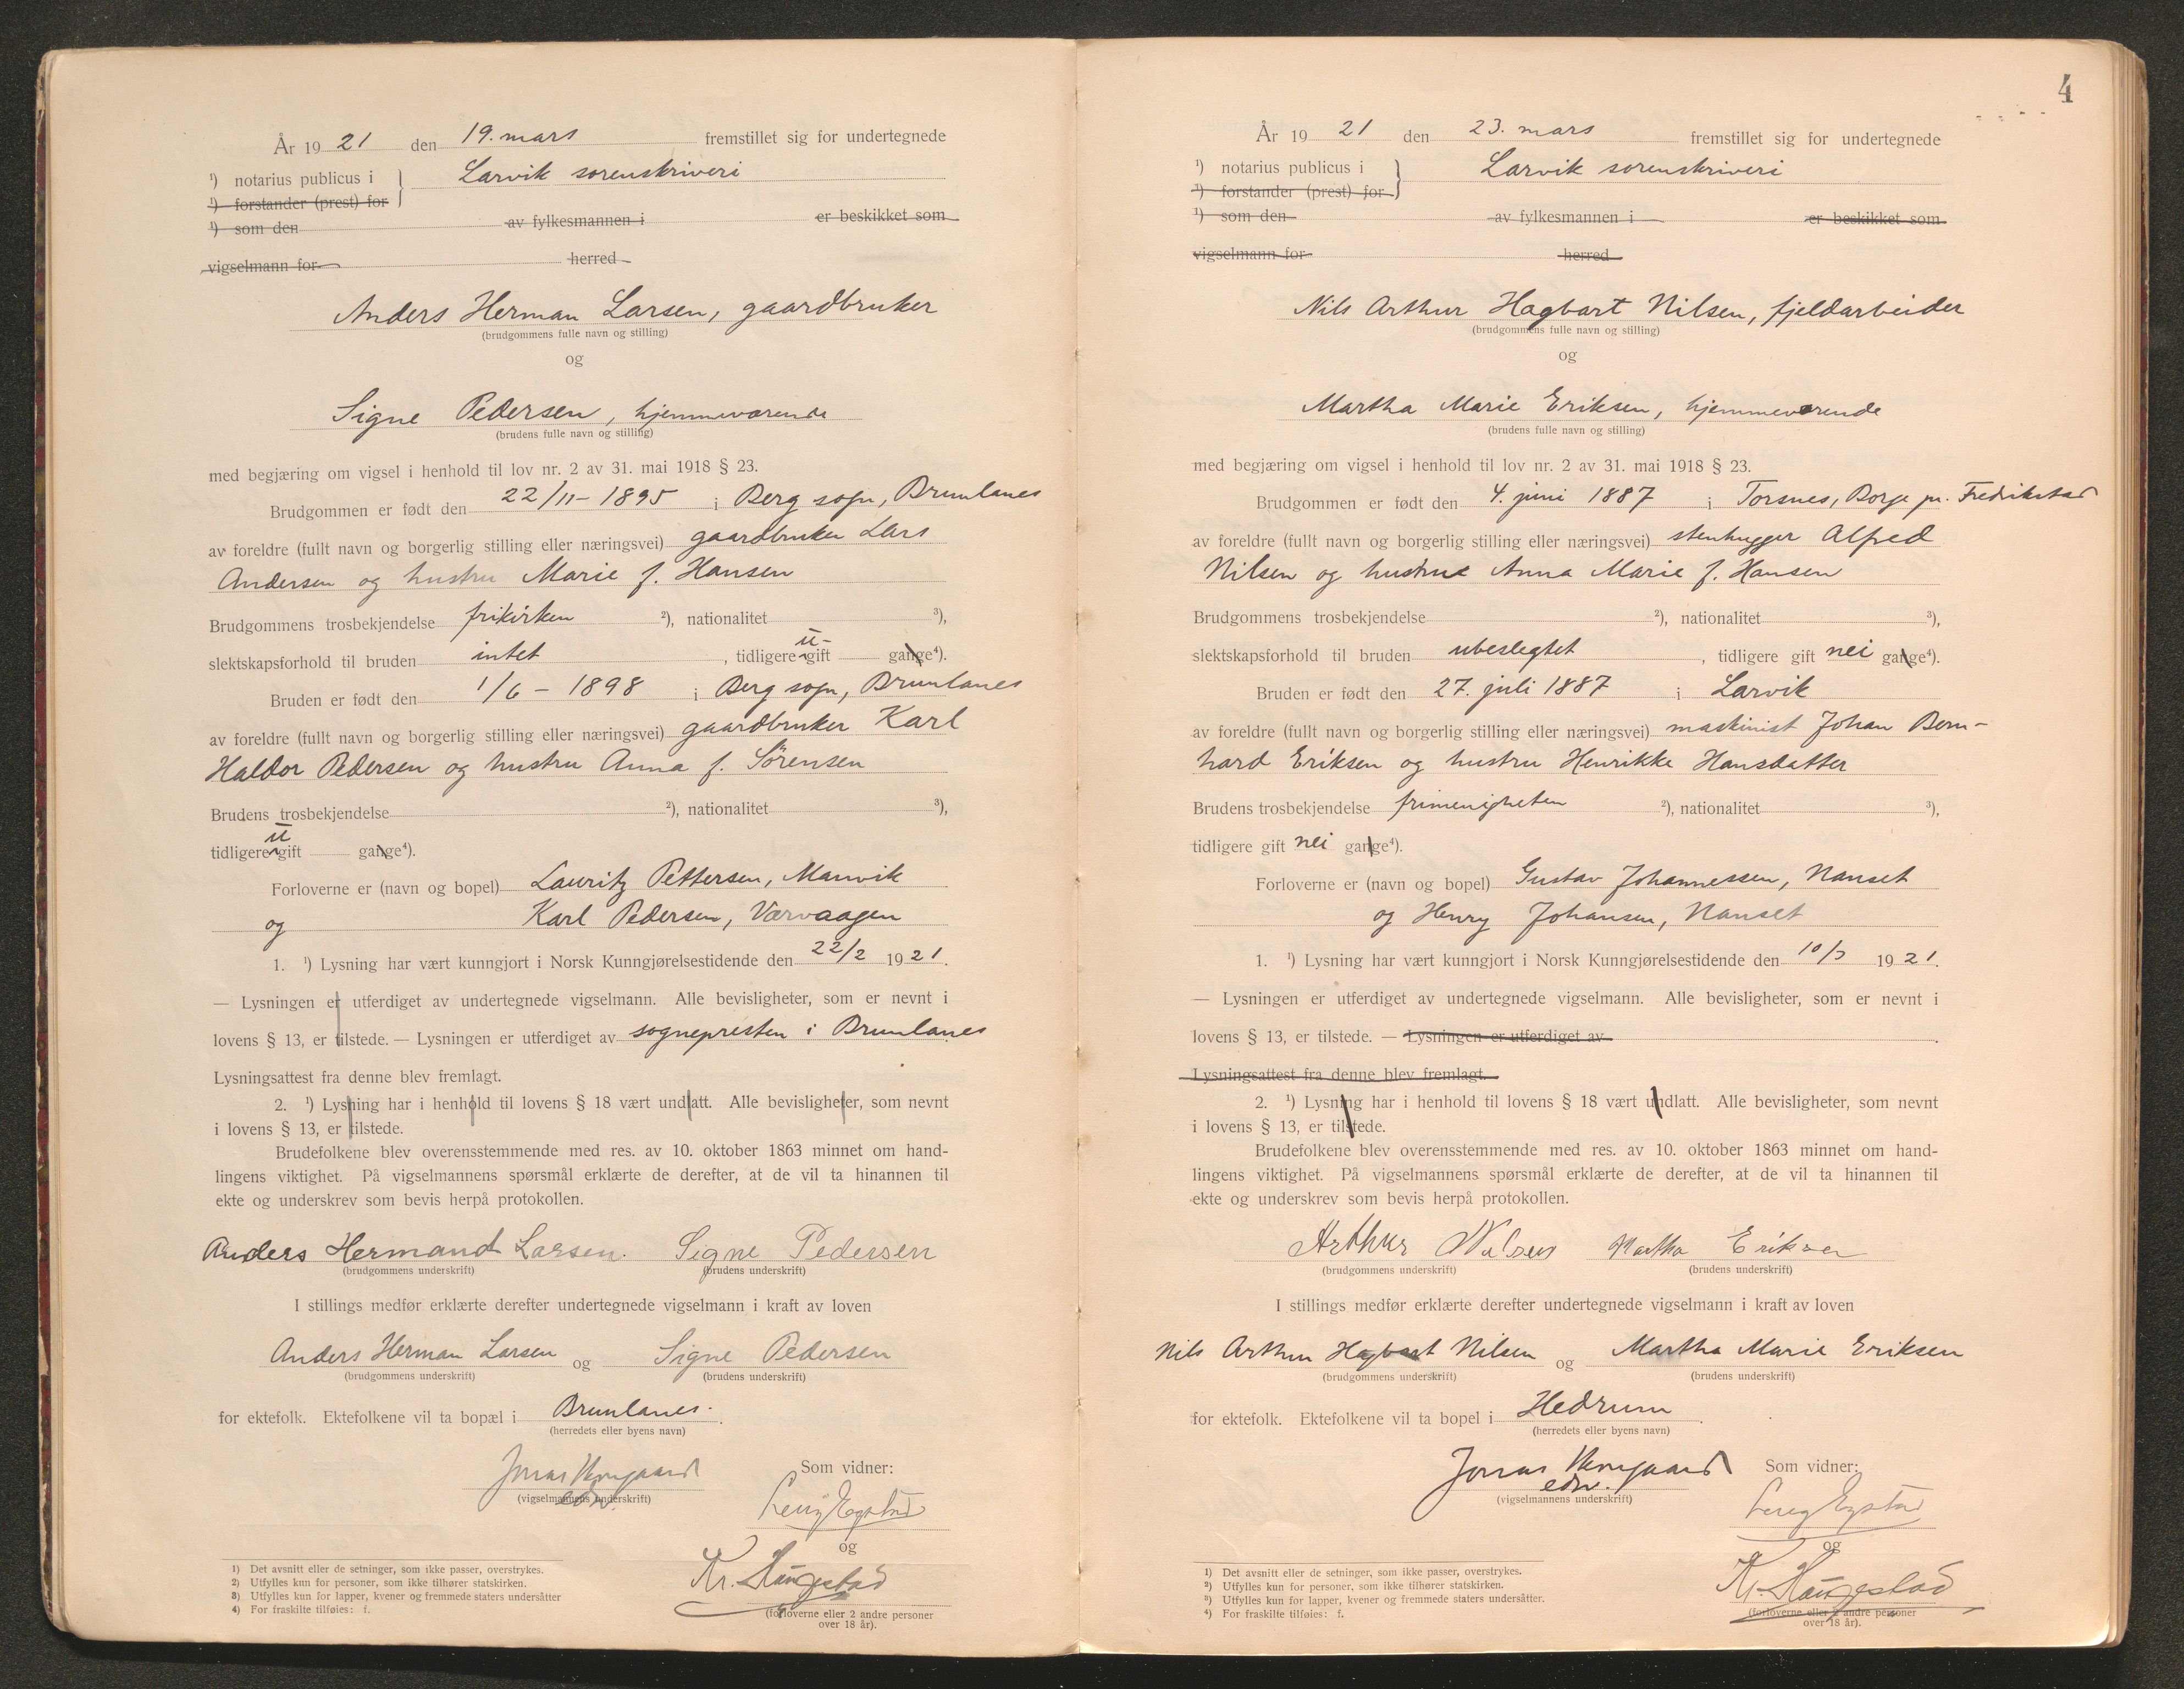 År 1921 den 19. mars fremstillet sig for undertegnede
¹) notarius publicus i } Larvik sorenskriveri
¹) forstander (prest) for
¹) som den av fylkesmannen i er beskikket som
vigselmann for herred
Anders Herman Larsen, gaardbruker
(brudgommens fulle navn og stilling)
og
Signe Pedersen, hjemmeværende
(brudens fulle navn og stilling)
med begjæring om vigsel i henhold til lov nr. 2 av 31. mai 1918 § 23.
Brudgommen er født den 22/11 - 1895 i Berg sogn, Brunlanes
av foreldre (fullt navn og borgerlig stilling eller næringsvei) gaardbruker Lars
Andersen og hustru Marie f. Hansen
Brudgommens trosbekjendelse frikirken ²), nationalitet ³),
slektskapsforhold til bruden intet , tidligere u-gift gange⁴).
Bruden er født den 1/6 - 1898 i Berg sogn, Brunlanes
av foreldre (fullt navn og borgerlig stilling eller næringsvei) gaardbruker Karl
Haldor Pedersen og hustru Anna f. Sörensen
Brudens trosbekjendelse ²), nationalitet ³),
tidligere u gift gange⁴).
Forloverne er (navn og bopel) Lauritz Pettersen, Manvik
og Karl Pedersen, Værvaagen
1. ¹) Lysning har vært kunngjort i Norsk Kunngjørelsestidende den 22/2 1921.
— Lysningen er utferdiget av undertegnede vigselmann. Alle bevisligheter, som er nevnt i
lovens § 13, er tilstede. — Lysningen er utferdiget av sognepresten i Brunlanes
Lysningsattest fra denne blev fremlagt.
2. ¹) Lysning har i henhold til lovens § 18 vært undlatt. Alle bevisligheter, som nevnt
i lovens § 13, er tilstede.
Brudefolkene blev overensstemmende med res. av 10. oktober 1863 minnet om hand-
lingens viktighet. På vigselmannens spørsmål erklærte de derefter, at de vil ta hinannen til
ekte og underskrev som bevis herpå protokollen.
Anders Hermand Larsen. Signe Pedersen
(brudgommens underskrift) (brudens underskrift)
I stillings medfør erklærte derefter undertegnede vigselmann i kraft av loven
Anders Herman Larsen og Signe Pedersen
(brudgommens underskrift) (brudens underskrift)
for ektefolk. Ektefolkene vil ta bopæl i Brunlanes.
(herredets eller byens navn)
Jonas
edv.
(vigselmannens underskrift)
Som vidner:
og
Kr. Haugestad
(forloverne eller 2 andre personer
over 18 år).
1) Det avsnitt eller de setninger, som ikke passer, overstrykes.
2) Utfylles kun for personer, som ikke tilhører statskirken.
3) Utfylles kun for lapper, kvener og fremmede staters undersåtter
4) For fraskilte tilføies: f.
4
År 1921 den 23. mars fremstillet sig for undertegnede
¹) notarius publicus i } Larvik sorenskriveri
¹) forstander (prest) for
¹) som den av fylkesmannen i er beskikket som
vigselmann for herred
Nils Arthur Hagbart Nilsen, fjeldarbeider
(brudgommens fulle navn og stilling)
og
Martha Marie Eriksen, hjemmeværende
(brudens fulle navn og stilling)
med begjæring om vigsel i henhold til lov nr. 2 av 31. mai 1918 § 23.
Brudgommen er født den 4. juni 1887 i Torsnes, Borge pr. Fredrikstad
av foreldre (fullt navn og borgerlig stilling eller næringsvei) stenhugger Alfred
Nilsen og hustru Anna Marie f. Hansen
Brudgommens trosbekjendelse ²), nationalitet ³),
slektskapsforhold til bruden ubeslegtet , tidligere gift nei gange⁴).
Bruden er født den 27. juli 1887 i Larvik
av foreldre (fullt navn og borgerlig stilling eller næringsvei) maskinist Johan Bern-
hard Eriksen og hustru Henrikke Hansdatter
Brudens trosbekjendelse frimenigheten ²), nationalitet ³),
tidligere gift nei gange⁴).
Forloverne er (navn og bopel) Gustav Johannessen, Nanset
og Henry Johansen, Nanset
1. ¹) Lysning har vært kunngjort i Norsk Kunngjørelsestidende den 10/3 1921.
— Lysningen er utferdiget av undertegnede vigselmann. Alle bevisligheter, som er nevnt i
lovens § 13, er tilstede. — Lysningen er utferdiget av .
Lysningsattest fra denne blev fremlagt.
2. ¹) Lysning har i henhold til lovens § 18 vært undlatt. Alle bevisligheter, som nevnt
i lovens § 13, er tilstede.
Brudefolkene blev overensstemmende med res. av 10. oktober 1863 minnet om hand-
lingens viktighet. På vigselmannens spørsmål erklærte de derefter, at de vil ta hinannen til
ekte og underskrev som bevis herpå protokollen.
Arthur Nilsen Martha Eriksen
(brudgommens underskrift) (brudens underskrift)
I stillings medfør erklærte derefter undertegnede vigselmann i kraft av loven
Nils Arthur Hagbart Nilsen og Martha Marie Eriksen
(brudgommens underskrift) (brudens underskrift)
for ektefolk. Ektefolkene vil ta bopel i Hedrum.
(herredets eller byens navn)
Jonas
edv.
(vigselmannens underskrift)
Som vidner:
og
K. Haugestad
(forloverne eller 2 andre personer
over 18 år).
1) Det avsnitt eller de setninger, som ikke passer, overstrykes.
2) Utfylles kun for personer, som ikke tilhører statskirken.
3) Utfylles kun for lapper, kvener og fremmede staters undersåtter.
4) For fraskilte tilføies: f.